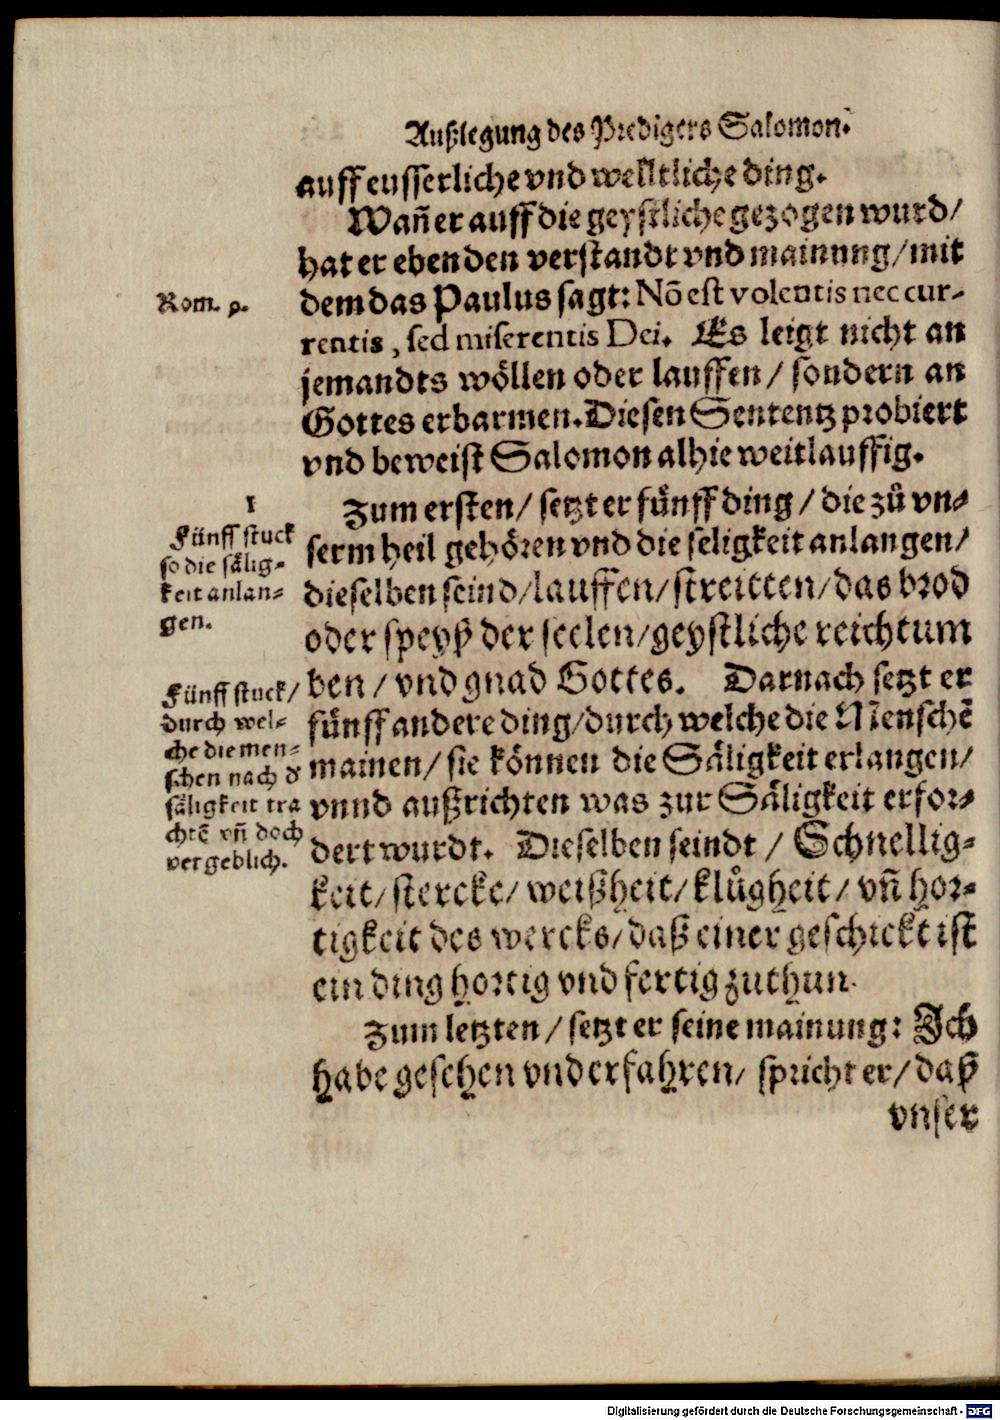 Außlegung des Predigers Salomon.
auff eusserliche vnd welltliche ding.
Wañ er auff die geystliche gezogen wurd/
hat er eben den verstandt vnd mainung/mit
Rom. 9.
dem das Paulus sagt: Nõ est volentis nec cur-
rentis, sed miserentis Dei. Es leigt nicht an
jemandts wöllen oder lauffen/ sondern an
Gottes erbarmen. Diesen Sententz probiert
vnd beweist Salomon alhie weitlauffig.
1
Fünff stuck
so die sälig-
keit anlan-
gen.
Zum ersten/ setzt er fünff ding/ die zů vn-
serm heil gehören vnd die seligkeit anlangen/
dieselben seind/lauffen/streitten/das brod
oder speyß der seelen/geystliche reichtum
ben/ vnd gnad Gottes. Darnach setzt er
Fünff stuck/
durch wel-
che die men-
schen nach d
säligkeit tra
chtẽ vñ doch
vergeblich.
fünff andere ding/durch welche die Menschẽ
mainen/ sie können die Säligkeit erlangen/
vnnd außrichten was zur Säligkeit erfor-
dert wurdt. Dieselben seindt / Schnellig-
keit/ stercke/ weißheit/ klůgheit/ vñ hor-
tigkeit des wercks/daß einer geschickt ist
ein ding hortig vnd fertig zuthun.
Zum letzten/ setzt er seine mainung: Ich
habe gesehen vnd erfahren/ spricht er/ daß
vnser
Digitalisierung gefördert durch die Deutsche Forschungsgemeinschaft - DFG